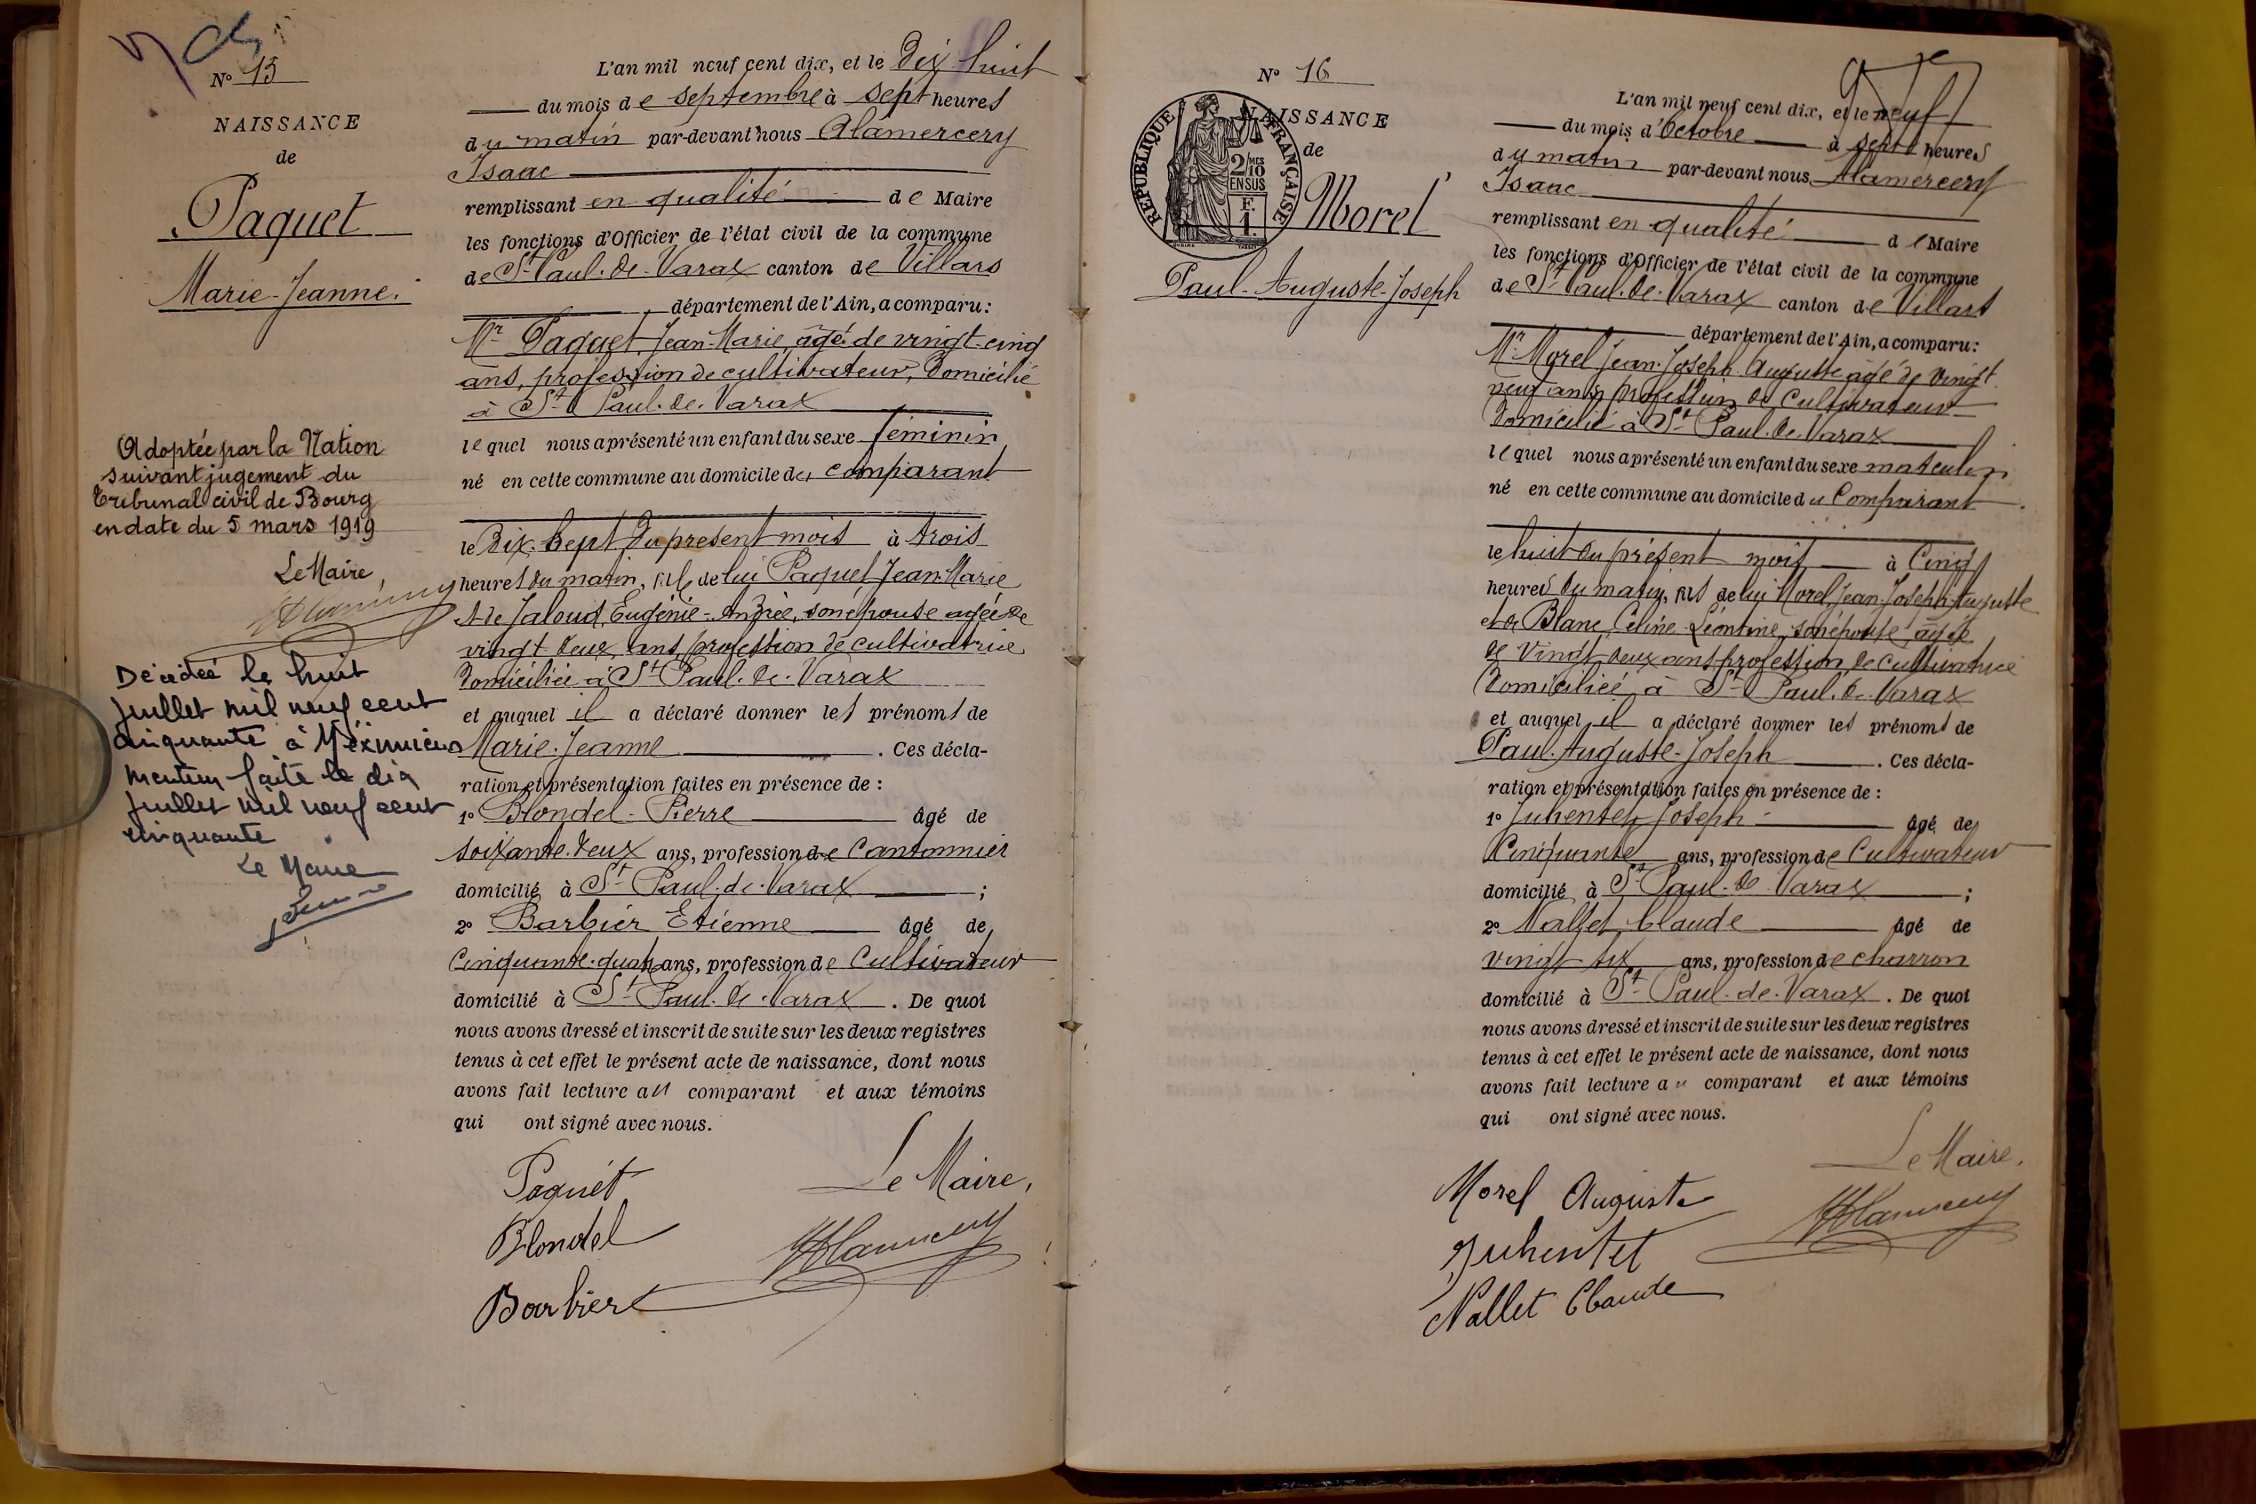 N° 15
NAISSANCE
de
Paquet
Marie-Jeanne.
Adoptée par la Nation
suivant jugement du
Tribunal civil de Bourg
en date du 5 mars 1919
Le Maire,
Décédée le huit
juillet mil neuf cent
cinquante à Meximieux
mention faite le dix
juillet mil neuf cent
cinquante
Le Maire
L'an mil neuf cent dix, et le Dix huit
du mois de Septembre à sept heures
du matin par-devant nous Alamercery
Isaac
remplissant en qualité de Maire
les fonctions d'Officier de l'état civil de la commune
de St Paul. de. Varax canton de Villars
département de l'Ain, a comparu:
Mr Paquet, Jean-Marie, âgé de vingt-cinq
ans, profession de cultivateur, Domicilié
à St Paul. de. Varax
lequel nous a présenté un enfant du sexe féminin
né en cette commune au domicile du comparant
le Dix. Sept du present mois à trois
heures du matin, fille de lui Paquet Jean-Marie
et de Jaloud, Eugénie-Andrée, son épouse agée de
vingt deux ans, profession de cultivatrice
Domiciliée à St Paul. de. Varax
et auquel il a déclaré donner les prénoms de
Marie-Jeanne. Ces décla-
ration et présentation faites en présence de :
1° Blondel - Pierre âgé de
soixante. deux ans, profession de Cantonnier
domicilié à St Paul. de. Varax ;
2° Barbier Etienne âgé de
Cinquante. quatre ans, profession de Cultivateur
domicilié à St Paul. de. Varax. De quoi
nous avons dressé et inscrit de suite sur les deux registres
tenus à cet effet le présent acte de naissance, dont nous
avons fait lecture au comparant et aux témoins
qui ont signé avec nous.
Paquet
Le Maire,
Blondel
Barbier
N° 16
NAISSANCE
de
REPUBLIQUE FRANÇAISE
2/10 MES
EN SUS
F.
1.
Morel
Paul-Auguste-Joseph
L'an mil neuf cent dix, et le neuf
du mois d'Octobre à sept heures
du matin par-devant nous Alamercery
Isaac
remplissant en qualité de Maire
les fonctions d'Officier de l'état civil de la commune
de St Paul. de. Varax canton de Villars
département de l'Ain, a comparu:
Mr Morel Jean-Joseph Auguste âgé de vingt
neuf ans, profession de Cultivateur
Domicilié à St Paul. de. Varax
lequel nous a présenté un enfant du sexe masculin
né en cette commune au domicile du Comparant.
le huit du présent mois à Cinq
heures du matin, fils de lui Morel, Jean-Joseph-Auguste
et de Blanc, Celine-Léontine, son épouse agée
de Vingt deux ans profession de cultivatrice
Domiciliée à St Paul. de. Varax
et auquel il a déclaré donner les prénoms de
Paul-Auguste-Joseph. Ces décla-
ration et présentation faites en présence de :
1° Juhentet Joseph - âgé de
Cinquante ans, profession de Cultivateur
domicilié à St Paul. de. Varax ;
2° Nallet, Claude âgé de
vingt six ans, profession de charron
domicilié à St Paul. de. Varax. De quoi
nous avons dressé et inscrit de suite sur les deux registres
tenus à cet effet le présent acte de naissance, dont nous
avons fait lecture au comparant et aux témoins
qui ont signé avec nous.
Le Maire,
Morel Auguste
Juhentet
Nallet Claude